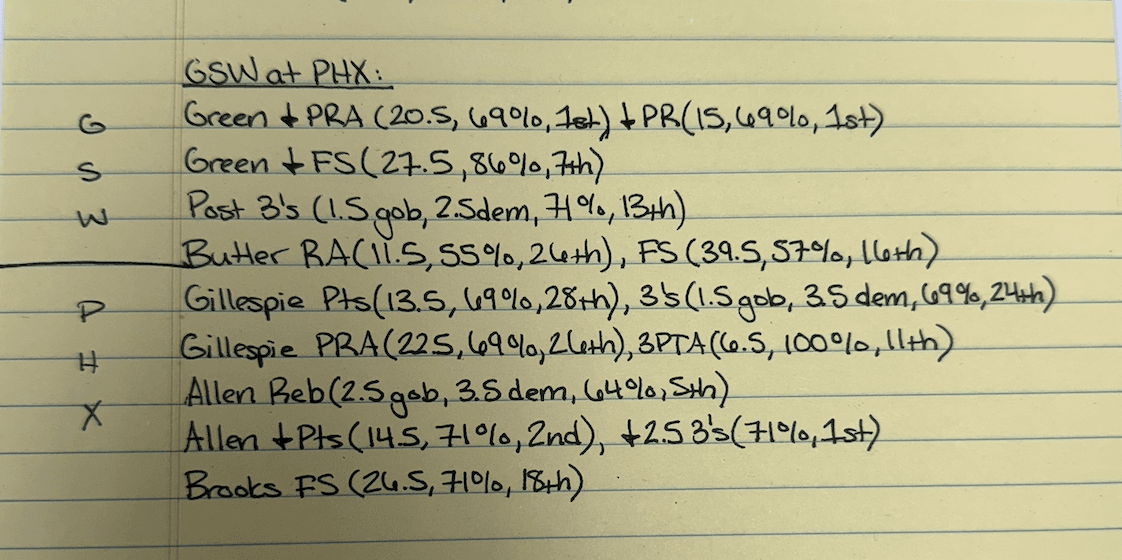 GSW at PHX:
G Green ↓ PRA (20.5, 69%, 1st) ↓ PR (15, 69%, 1st)
S Green ↓ FS (27.5, 86%, 7th)
W Post 3's (1.5 gob, 2.5 dem, 71%, 13th)
Butler RA (11.5, 55%, 26th), FS (39.5, 57%, 16th)
P Gillespie Pts (13.5, 69%, 28th), 3's (1.5 gob, 3.5 dem, 69%, 24th)
H Gillespie PRA (22.5, 69%, 26th), 3PTA (6.5, 100%, 11th)
Allen Reb (2.5 gob, 3.5 dem, 64%, 5th)
X Allen ↓ Pts (14.5, 71%, 2nd), ↓ 2.5 3's (71%, 1st)
Brooks FS (26.5, 71%, 18th)